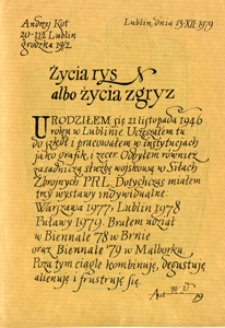 Andrzej Kot
20-112 Lublin
grodzka 19/2
Lublin, dnia 15·XII·1979
Życia rys
albo życia zgryz
URODZIŁEM się 21 listopada 1946
roku w Lublinie. Uczęszałem tu
do szkół i pracowałem w instytucjach
jako grafik i zecer. Odbyłem również
zasadniczą służbę wojskową w Siłach
Zbrojnych PRL. Dotychczas miałem
trzy wystawy indywidualne:
Warszawa 1977, Lublin 1978
Puławy 1979. Brałem udział
w Biennale '78 w Brnie
oraz Biennale '79 w Malborku.
Poza tym ciągle kombinuję, degustuję
alienuję i frustruję się.
Kot
79